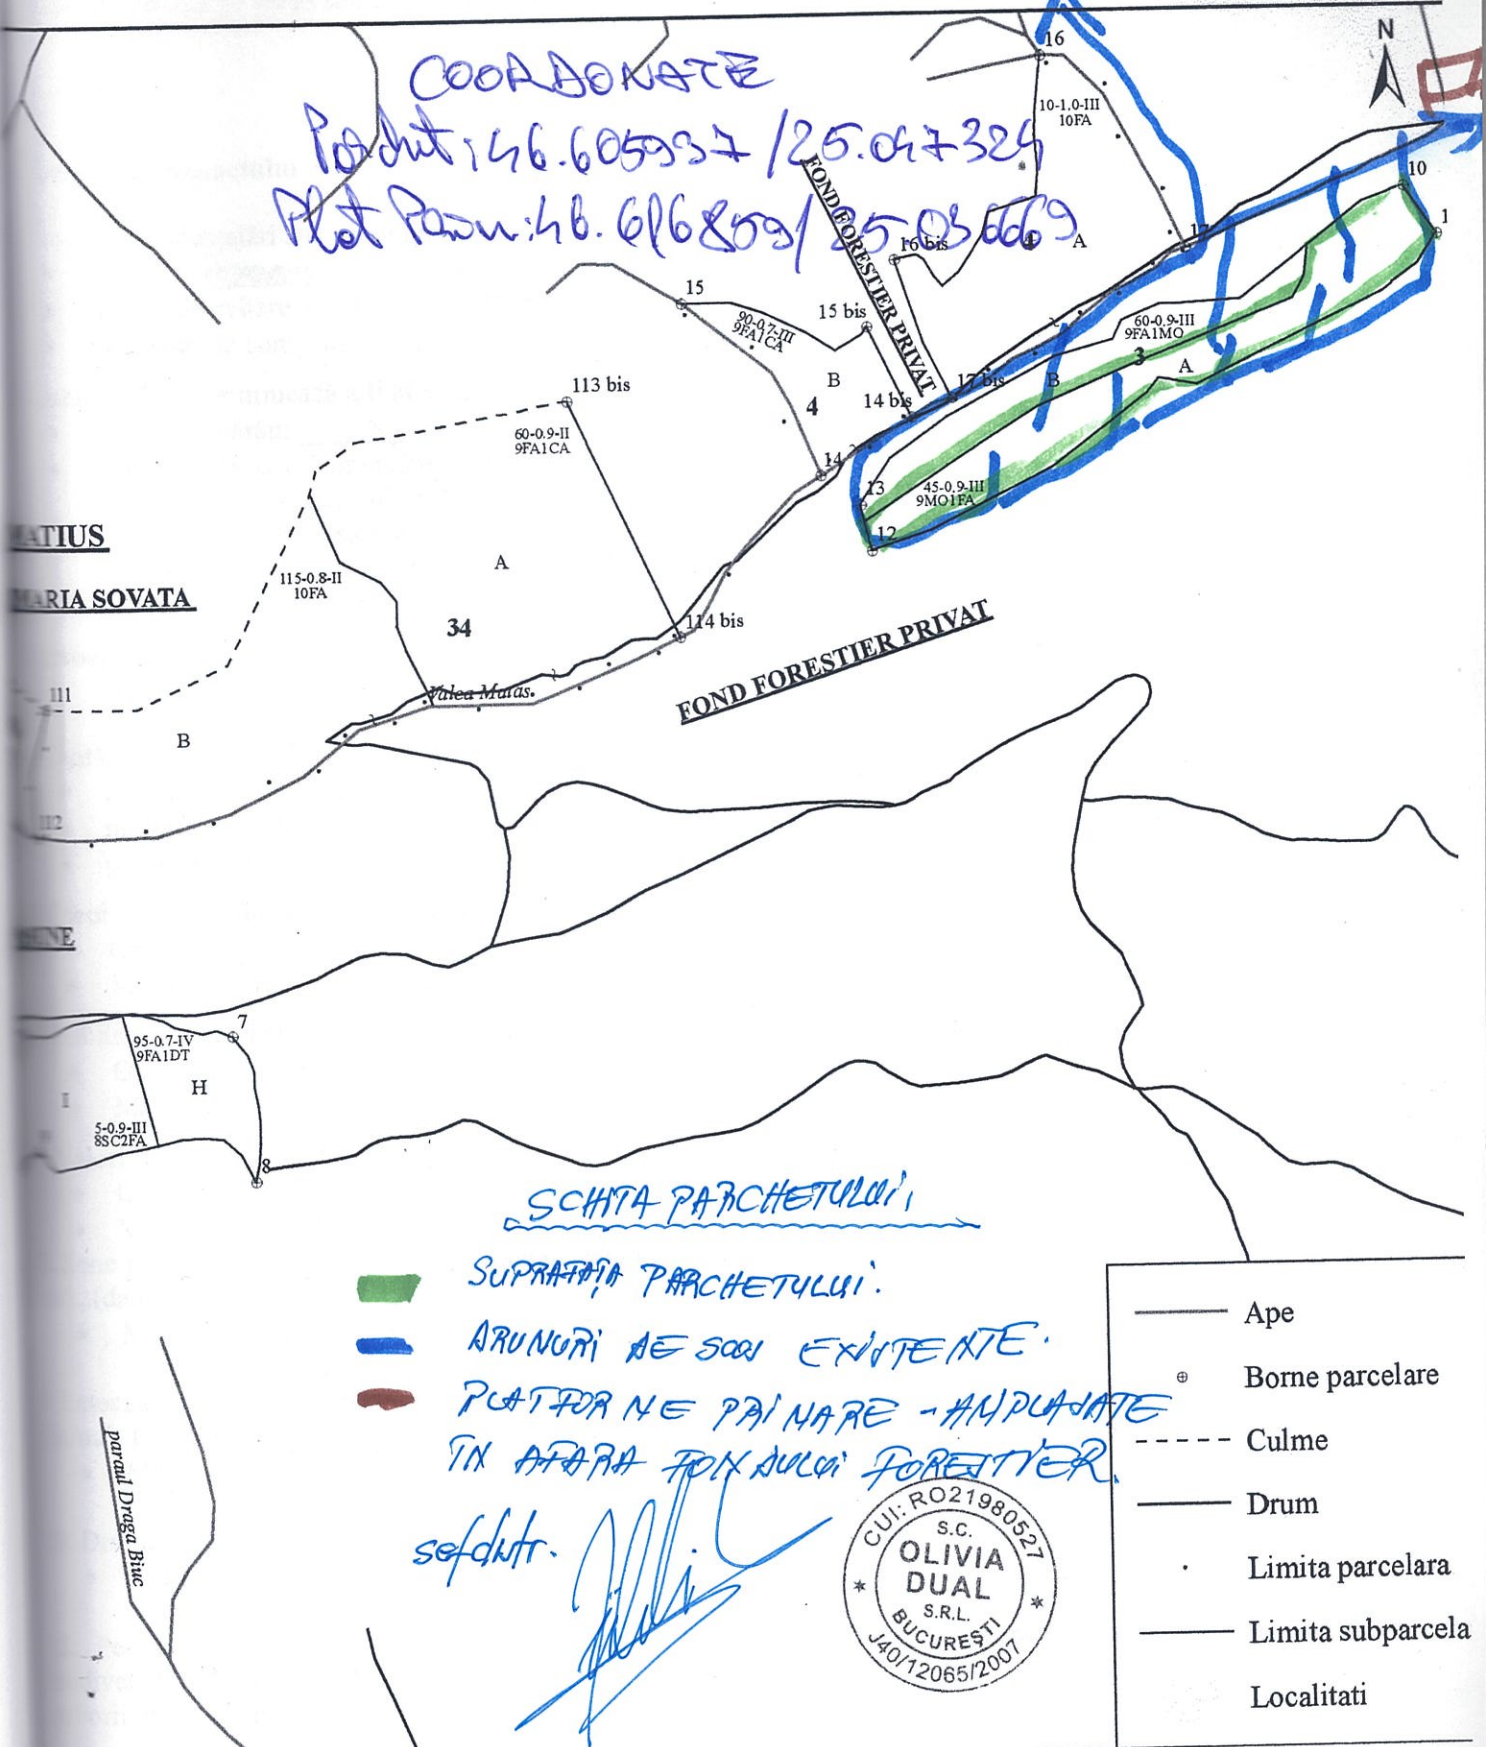 COORDONATE
Parchet: 46.605937 / 25.047324
Plat Prim: 46.616859 / 25.036669
N
16
10-1.0-III
10FA
10
1
FOND FORESTIER PRIVAT
4
A
16 bis
17
15
15 bis
90-0.7-III
9FA1CA
60-0.9-III
9FA1MO
3
A
B
4
B
17 bis
14 bis
113 bis
60-0.9-II
9FA1CA
14
13
45-0.9-III
9MO1FA
12
ATIUS
MARIA SOVATA
115-0.8-II
10FA
A
34
114 bis
FOND FORESTIER PRIVAT
111
Valea Maias.
B
112
7
95-0.7-IV
9FA1DT
H
I
5-0.9-III
8SC2FA
8
SCHITA PARCHETULUI,
SUPRAFAȚA PARCHETULUI.
DRUMURI DE SCOS EXISTENTE.
PLATFORME PRIMARE - AMPLASATE
IN AFARA FONDULUI FORESTIER.
sefdistr.
CUI: RO21980527
S.C.
OLIVIA
DUAL
S.R.L.
BUCUREȘTI
J40/12065/2007
paraul Draga Biuc
Ape
Borne parcelare
Culme
Drum
Limita parcelara
Limita subparcela
Localitati